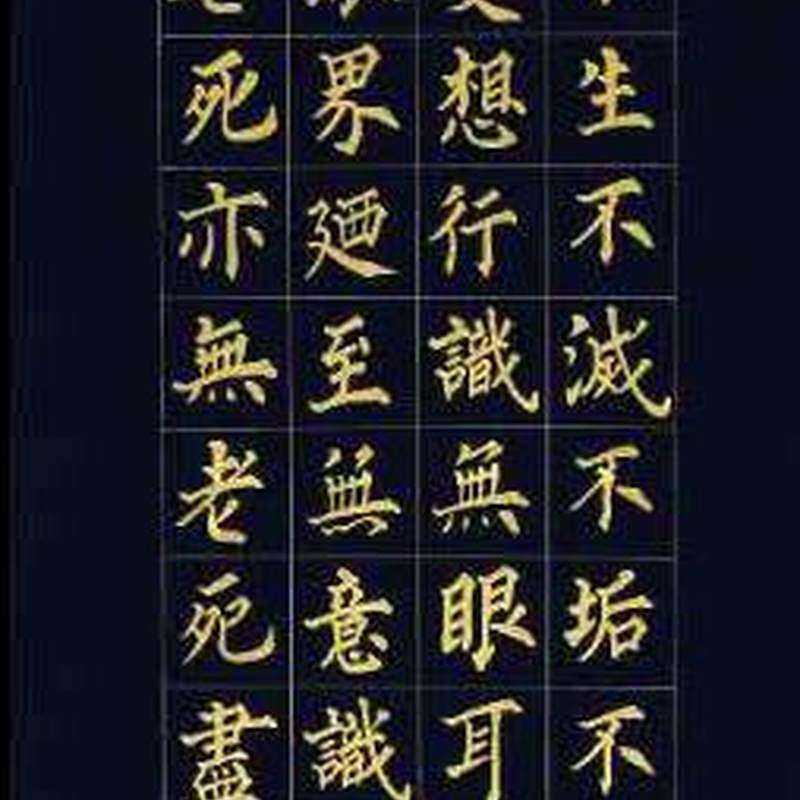 生不滅不垢不
想行識無眼耳
界廼至無意識
死亦無老死盡